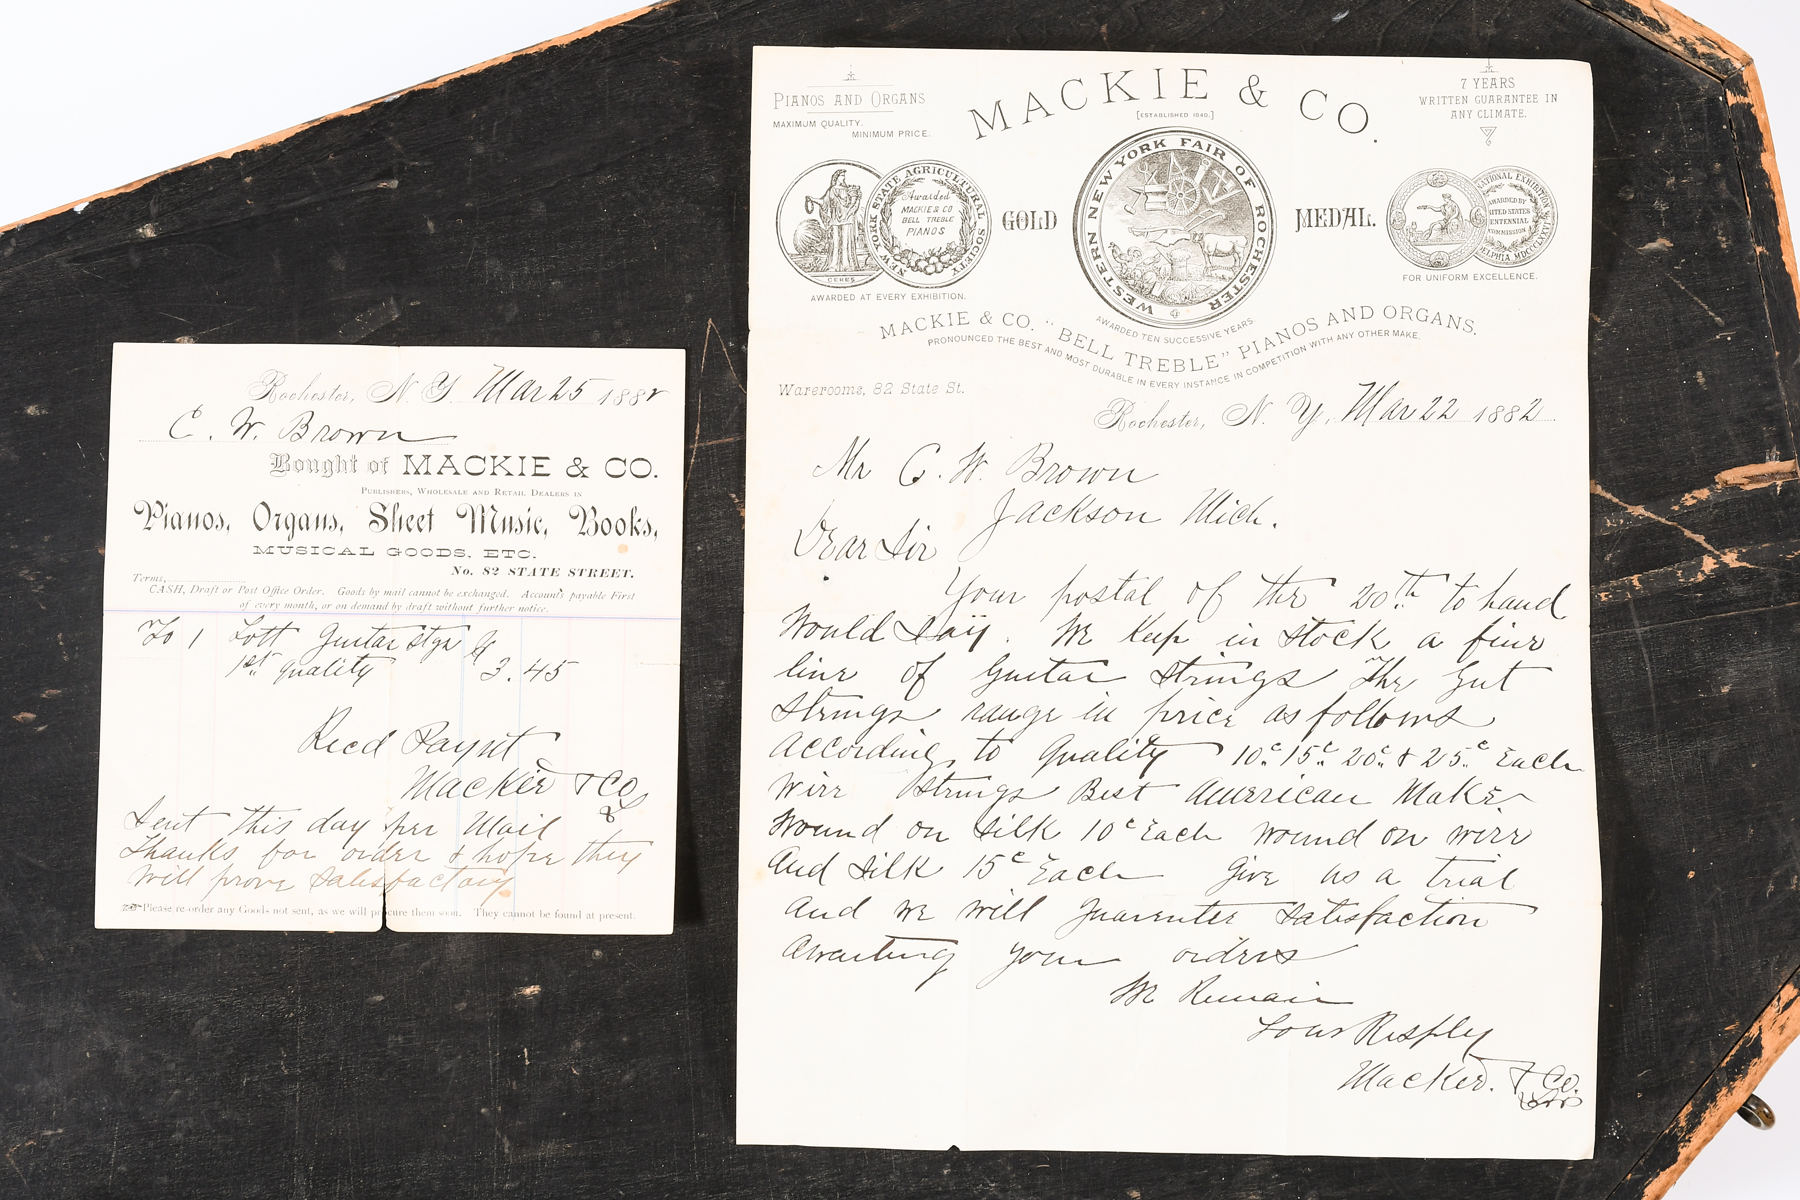 Rochester, N. Y. Mar 25 1882
C. W. Brown
Bought of MACKIE & CO.
PUBLISHERS, WHOLESALE AND RETAIL DEALERS IN
Pianos, Organs, Sheet Music, Books,
MUSICAL GOODS, ETC.
No. 82 STATE STREET.
Terms,
CASH, Draft or Post Office Order. Goods by mail cannot be exchanged. Accounts payable First
of every month, or on demand by draft without further notice.
To 1 Lott Guitar Stgs
1st quality 3.45
Recd Paymt
Mackie & Co
Sent this day per Mail
Thanks for order & hope they
will prove satisfactory
Please re-order any Goods not sent, as we will procure them soon. They cannot be found at present.
PIANOS AND ORGANS
MAXIMUM QUALITY.
MINIMUM PRICE.
MACKIE & CO.
[ESTABLISHED 1840.]
7 YEARS
WRITTEN GUARANTEE IN
ANY CLIMATE.
CERES
NEW YORK STATE AGRICULTURAL SOCIETY
Awarded
MACKIE & CO
BELL TREBLE
PIANOS
AWARDED AT EVERY EXHIBITION.
GOLD
WESTERN NEW YORK FAIR OF ROCHESTER
MEDAL.
AWARDED BY
UNITED STATES
CENTENNIAL
COMMISSION
FOR UNIFORM EXCELLENCE.
AWARDED TEN SUCCESSIVE YEARS.
MACKIE & CO. "BELL TREBLE" PIANOS AND ORGANS.
PRONOUNCED THE BEST AND MOST DURABLE IN EVERY INSTANCE IN COMPETITION WITH ANY OTHER MAKE.
Warerooms, 82 State St.
Rochester, N. Y., Mar 22 1882
Mr C. W. Brown
Jackson Mich.
Dear Sir
Your postal of the 20th to hand
Would say. We keep in stock a fine
line of Guitar Strings The Gut
Strings range in price as follows
According to Quality 10c 15c 20c & 25c Each
Wire Strings Best American Make
Wound on Silk 10c Each Wound on wire
And Silk 15c Each Give us a trial
And we will guarentee satisfaction
Awaiting your orders
We Remain
Yours Respfly
Mackie & Co.